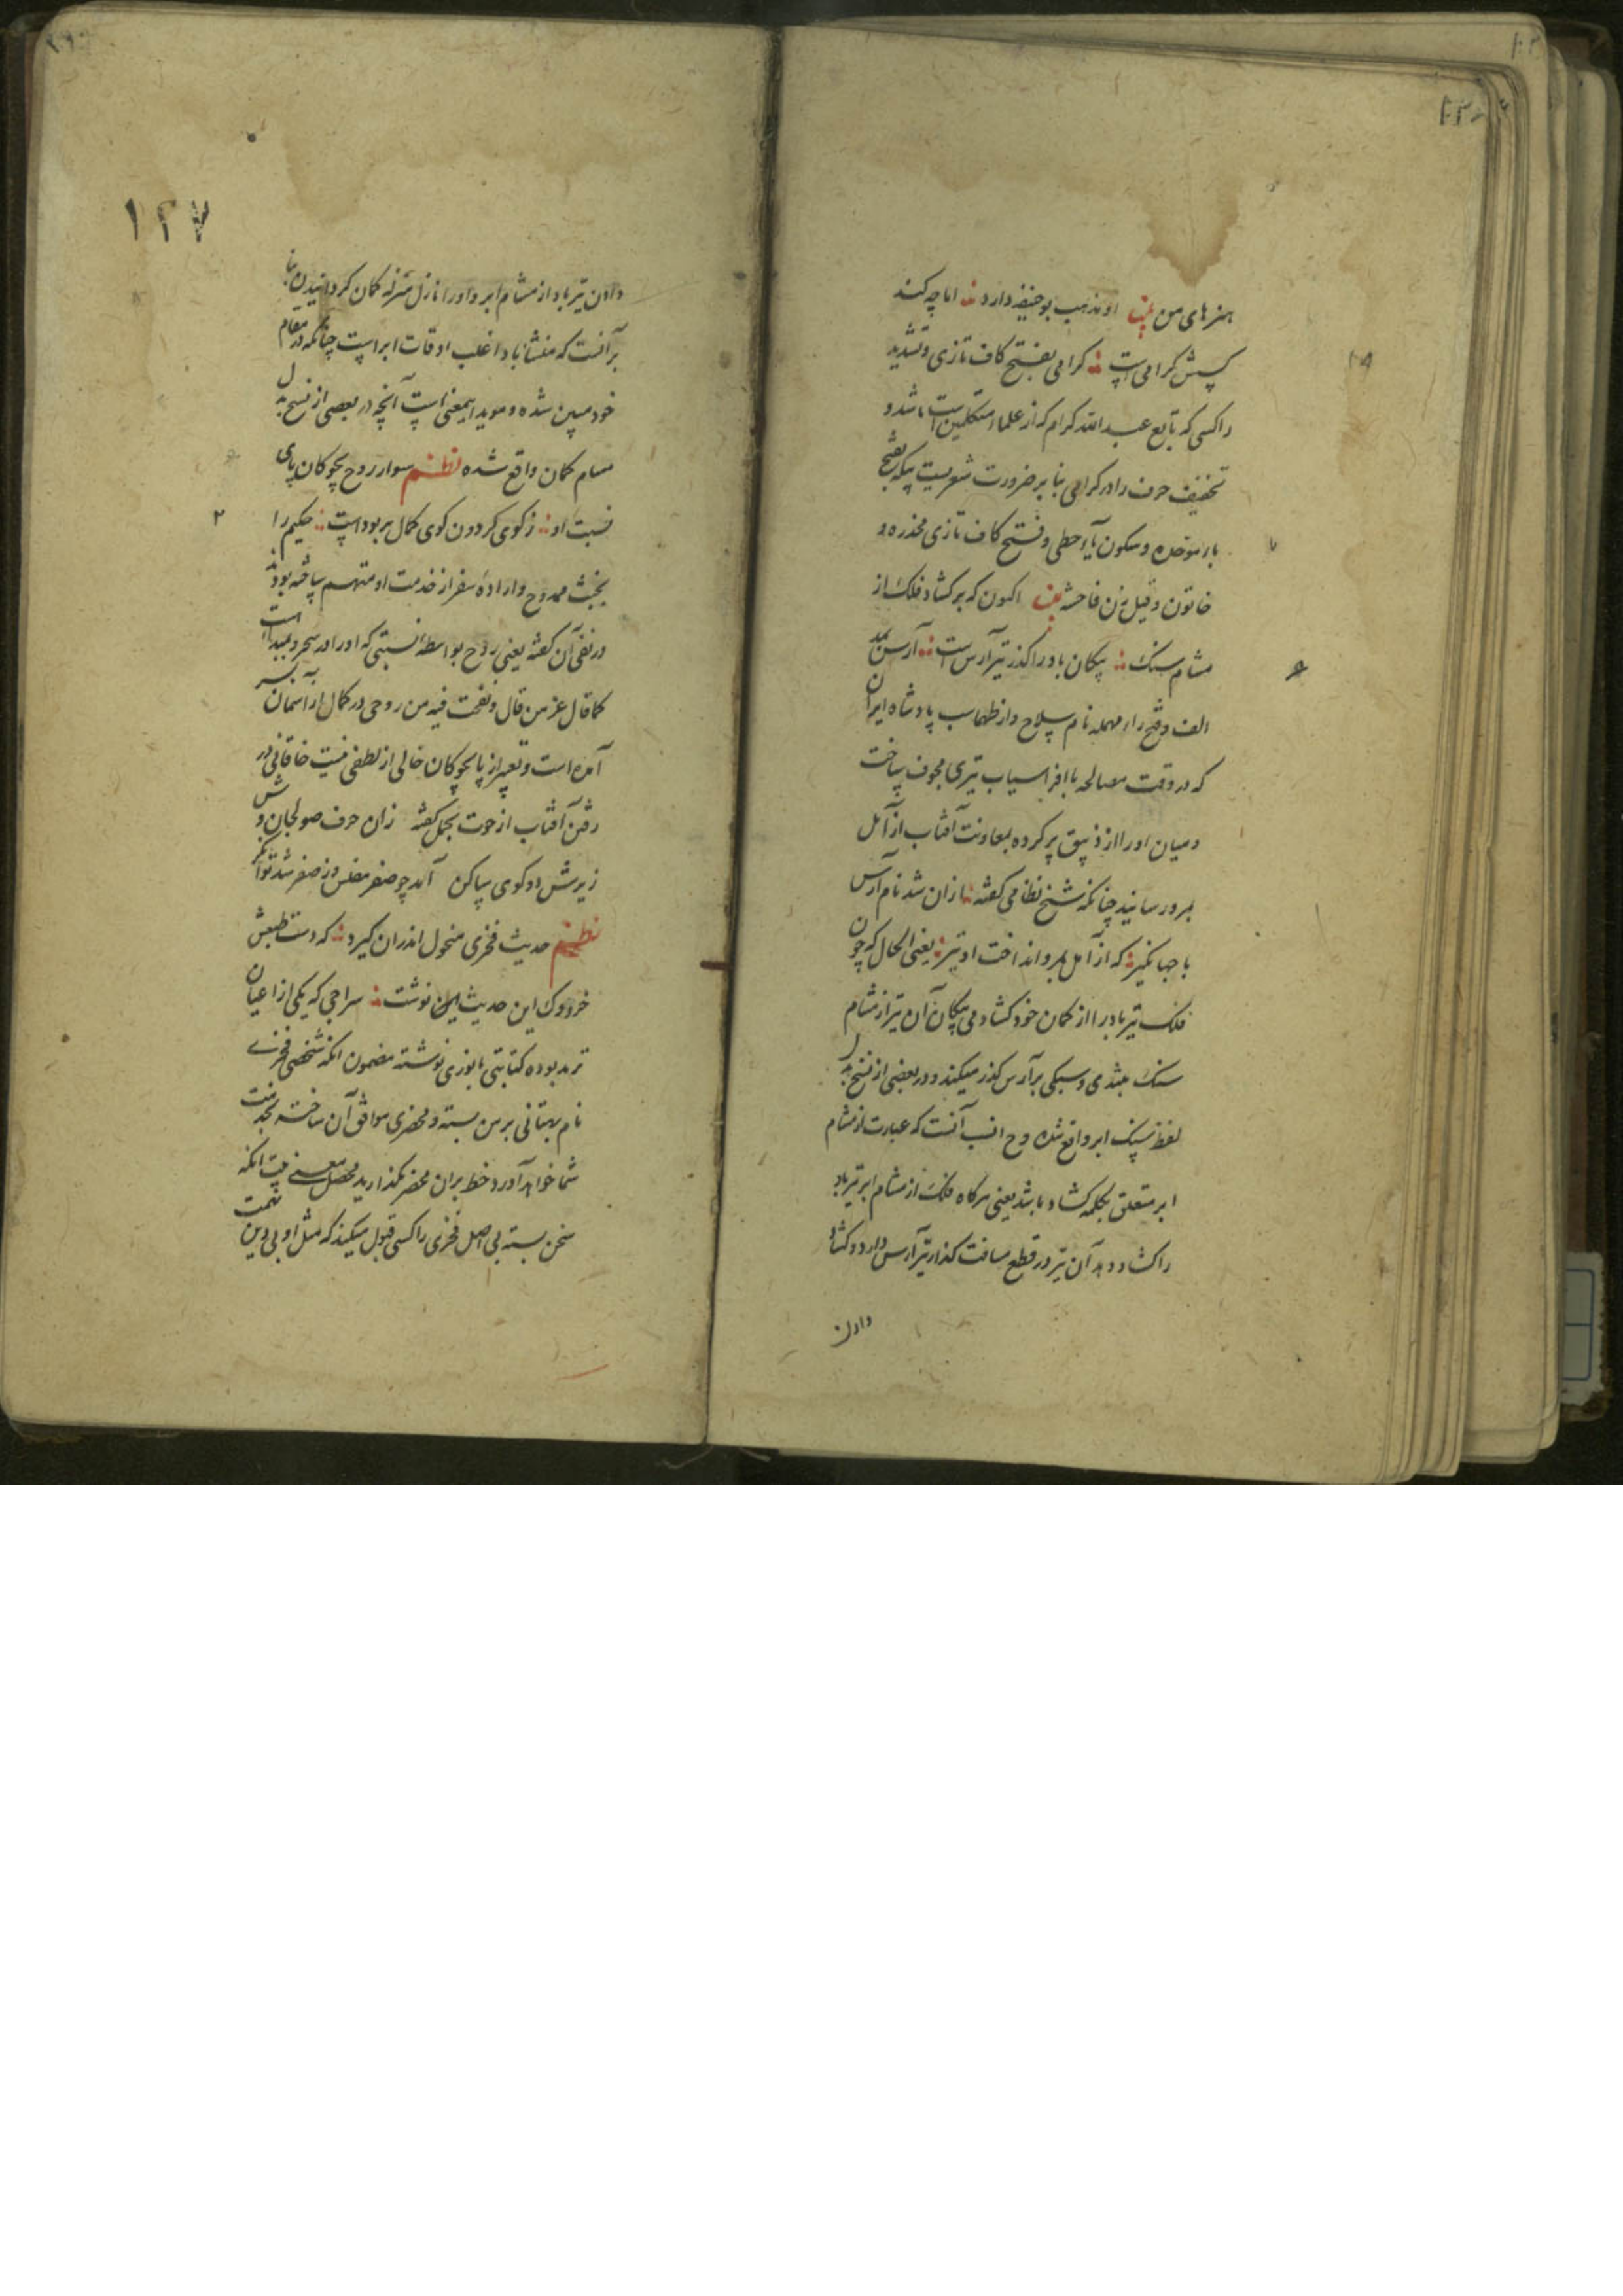 هنرهای من بیت او مذهب بوحنیفه دارد اما چه کند
کیش کرامی است کرامی بفتح کاف تازی و تشدید
را کسی که تابع عبد الله کرام که از علماء متکلمین است باشد و
تخفیف حرف را در کرامی بنا بر ضرورت شعریست بیکه بفتح
باء موحده و سکون یاء حطی و فتح کاف تازی مخدره و
خاتون و قیل زن فاحشه بیت اکنون که بر کشاد فلک از
مشام سنک پیکان باد را کذر تیر آرس است آرس بمد
الف و فتح راء مهمله نام سلاح دار طهماسب پادشاه ایران
که در وقت مصالحه با افراسیاب تیری مجوف ساخت
و میان او را از زیبق پر کرده بمعاونت آفتاب از آمل
بمرو رسانید چنانکه شیخ نظامی کفته ازان شد نام آرس
با جهانکیر که از آمل بمرو انداخت او تیر یعنی الحال که چون
فلک تیر باد را از کمان خود کشاد می پیکان آن تیر از مشام
سنک بتندی و سبکی بر آرس کذر میکند و در بعضی از نسخ بدل
لفظ سنک ابر واقع شده و ح انسب آنست که عبارت از مشام
ابر متعلق بکلمه کشاد باشد یعنی هرکاه فلک از مشام ابر تیر باد
را کشاد دهد آن تیر در قطع مسافت کذار تیر آرس دارد و کشاد
دادن
۱۲۷
دادن تیر باد از مشام ابر و او را نازل منزله کمان کردانیدن بنا
بر آنست که منشأ باد اغلب اوقات ابر است چنانکه در مقام
خود مبین شده و موید اینمعنی است آنچه در بعضی از نسخ بدل
مشام کمان واقع شده نظم سوار روح بچوکان پای
نسبت او ز کوی کردون کوی کمال بربوداست حکیم را
بخبث ممدوح و اراده سفر از خدمت او متهم ساخته بودند
در نفی آن کفته یعنی روح بواسطه نسبتی که او را در سحر و بمبدا است
کما قال عز من قال و نفخت فیه من روحی در کمال از آسمان بر سر
آمده است و تعبیر از پا بچوکان خالی از لطفی نیست خاقانی در
رفتن آفتاب از حوت بحمل کفته زان حرف صولجان وش
زیرش دو کوی ساکن آمد چو صفر مفلس وز صفر شد توانکر
نظم حدیث فخری منحول اندران کیرد که دست طبعش
خود وک این حدیث این نوشت سراجی که یکی از اعیان
ترمد بوده کتابتی بانوری نوشته مضمون انکه شخصی فخری
نام بهتانی بر من بسته و محضری موافق آن ساخته بخدمت
شما خواهد آورد خط بران محضر نکذارید محصل معنی بیت انکه
سخن بسته بی اصل فخری را کسی قبول میکند که مثل او بی دین